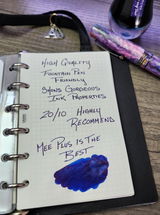 High Quality
Fountain Pen
Friendly
Shows Gorgeous
Ink Properties
20/10 Highly
Recommend
Mee Plus Is The
Best